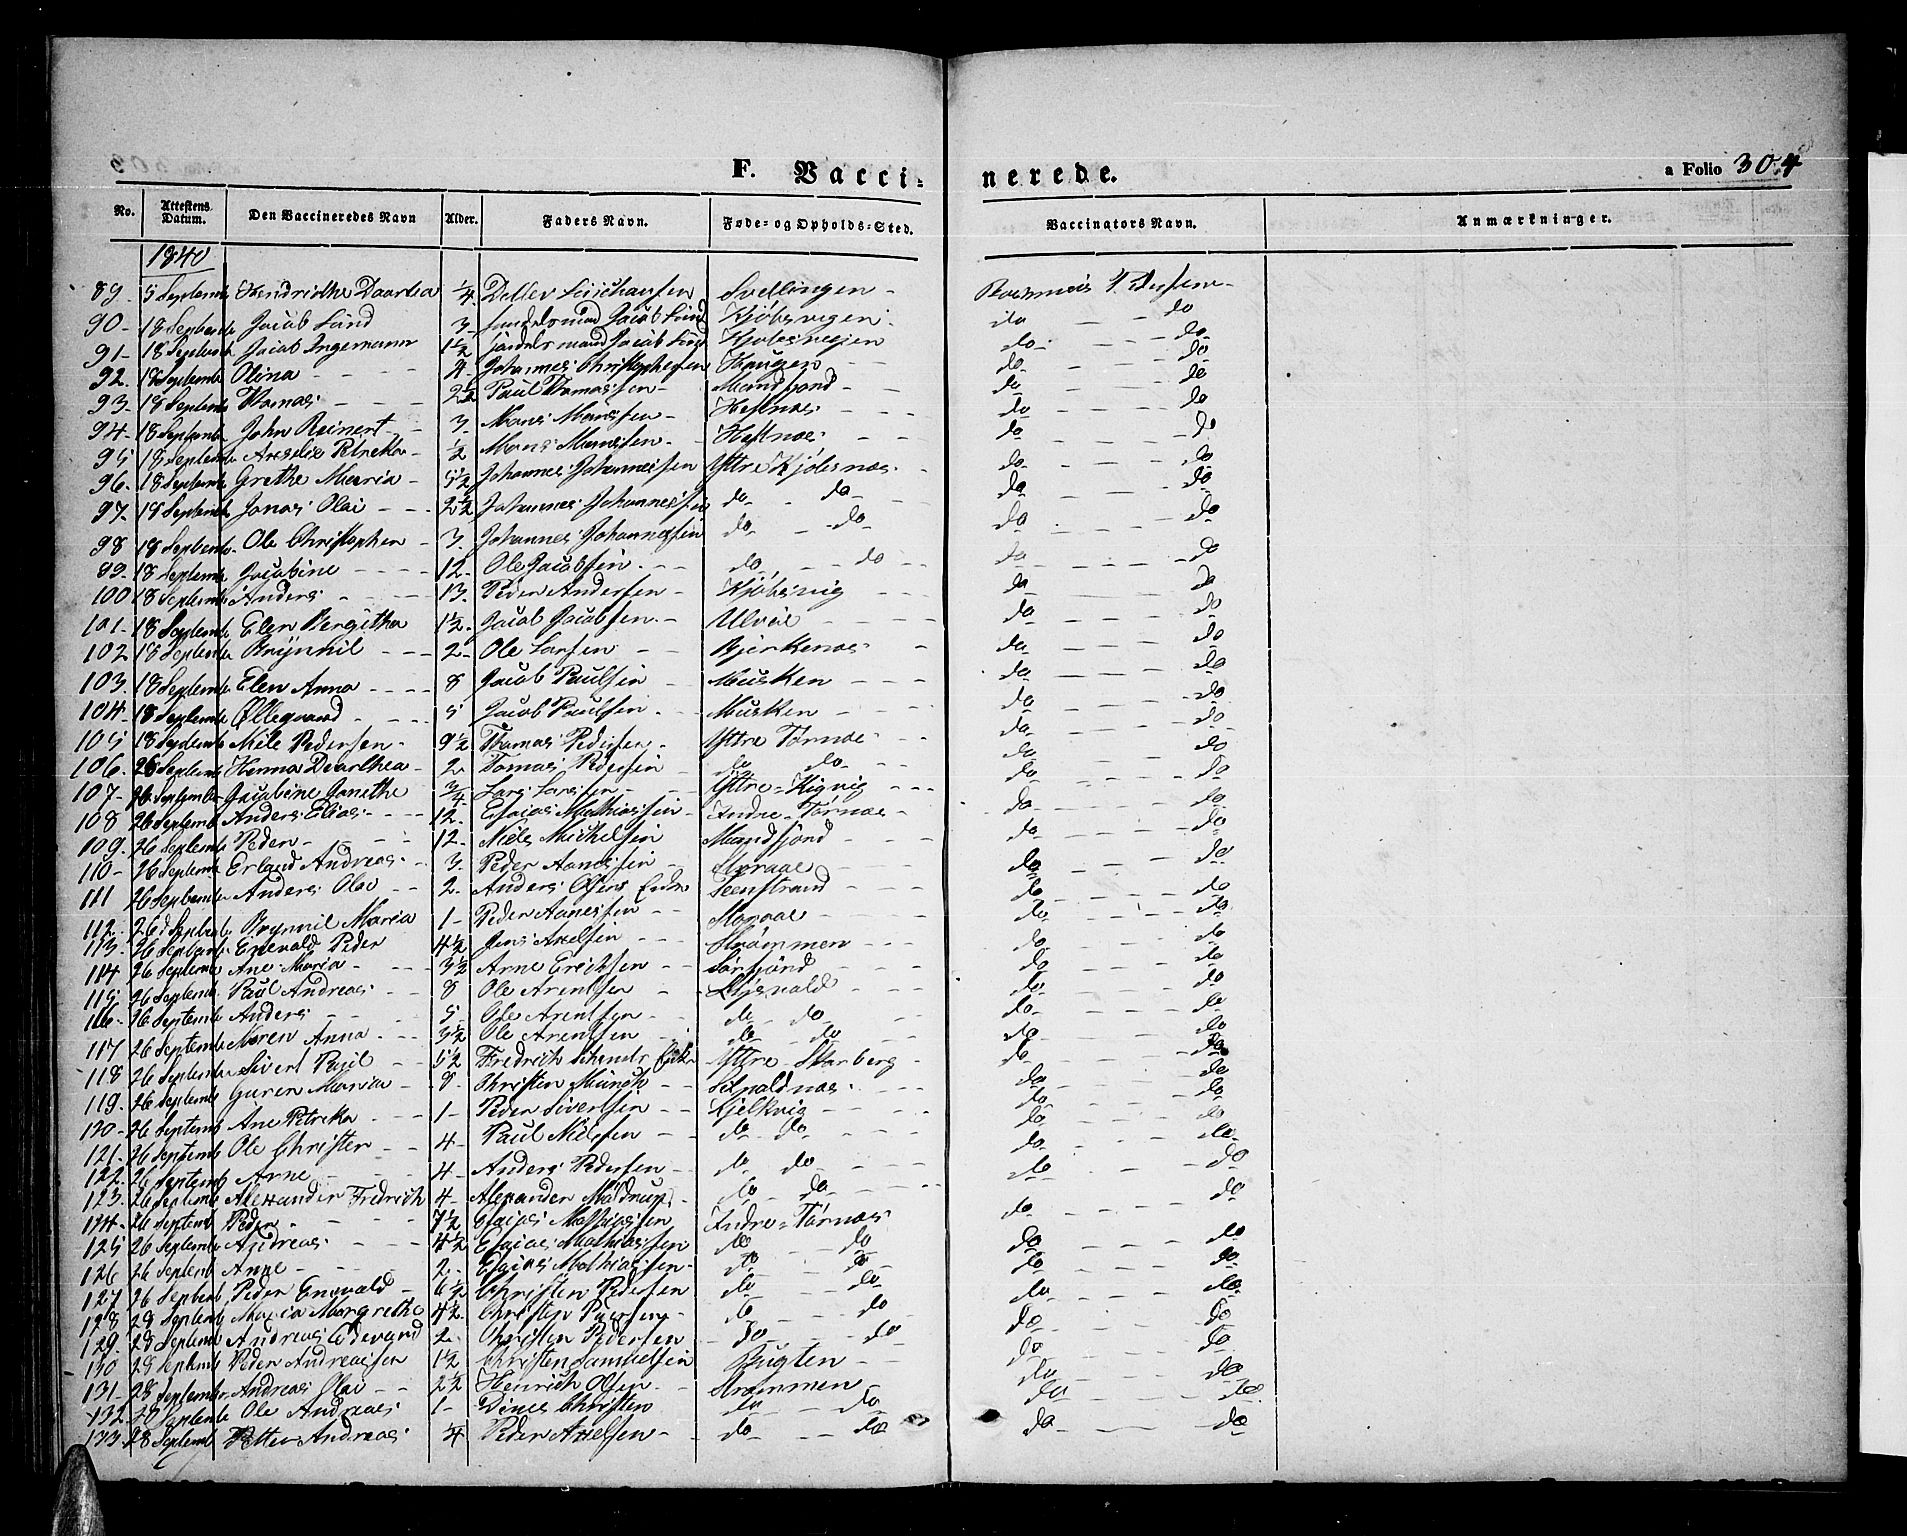 F. Vaccinerede. a Folio 304
No. Attestens Datum. Den Vaccineredes Navn Alder. Faders Navn. Føde- og Opholds-Sted. Vaccinators Navn. Anmærkninger.
1840
89. 5 Septemb Hendrikke Daartea 1/4 Detlev Svellingen - Pedersen -
90 - 18 Septembe Jacob Lund 3 - Jacob Lund Kjøbsvigen - do - - do
91 - 18 Septemb Jacob Ingemann 1 1/2 Jacob Lund Kjobsvigen do - - - do
92. 18 Septembe Olina - - - - 4 - Johannes Christophersen Haugen - - do - - - do
93 - 18 Septemb Thomas - - - 2 1/2 Paul Thomassen - Mandfjord - - do - - - do
94 - 18 Septembe John Reinert - - 3 - Mons Monssen - Hellnes - - - do - - - do
95 18 Septemb Petrekka - 1/2 Mons Monssen - - Hellnes - - do - - - do
96 - 18 Septemb Grethe Maria - 5 1/2 Johannes Johannessen Yttre Kjøbsnæs - - do - - - do
97 - 18 Septemb Jonas Olai - - - 2 1/2 Johannes Johannessen do - - do - - - do - - - do
98 18 Septembe - Ole Christopher - 3 - Johannes Johannessen do - - do - do - - do
99 - 18 Septemb Jacobine - - - - 12 - Ole Jacobsen - - - do - - - do - - do - - - do
100 18 Septemb Anders - - - - 13 - Peder Andersen - Kjøbsvig - - do - - - do
101 - 18 Septemb Elen Bergitha 1 1/2 - Jacob Jacobsen - - Ulvig - - - - do - - - do
102 18 Septembe Brynnil - - - 2 - Ole Larsen - - Bjerkenæs - do - - - do
103 18 Septemb Elen Anna - - - - 8 Jacob Paulsen - Musken - - - do - - - do
104 - 18 Septemb Øllegaard - - - - 5 Jacob Paulsen - - Musken - - - do - - - do
105 18 Septembe Nils Pedersen - 9 1/2 Thomas Pedersen - Yttre Tørnæs - - do - - - do
106 - 26 Septemb Hanna Daarthea - 2 - Tomas Pedersen - do do - - - do - - - do
107 - 26 Septembe Jacobine Janethe 3/4 Lars Larsen - - - Yttre - Kigvig - - - do - - - do
108 26 Septemb Anders Elias - - 12 - Esaias Mathiassen - Indre - Tørnæs - do - - - do
109 - 26 Septemb Peder - - - - 12 - Niels Michelsen Mandfjord - - do - - - do
110 - 26 Septemb Erland Andreas - - 3 - Peder Aanessen - - do - - - do
111 26 Septembe Anders Olai - - 2 - Anders - - - do - - - do
112 - 26 Septemb Brynnil Maria 1 - Peder Aanessen - - - - - do - - - do
113 - 26 Septemb Enevald Peder 4 1/2 Jens Axelsen - - - Strømmen - - - do - - - do
114 26 Septemb Ane Maria - - - - 3 1/2 Arne Erichsen - - Sørfjord - - do - - - do
115 26 Septemb Paul Andreas - - 8 Ole Arentsen - - - - - do - - - do
116 - 26 Septemb Anders - - - - 5 - Ole Arentsen - - do - do - - do - - - do
117 26 Septemb Maren Anna - - - 3 1/2 Ole Arentsen - - do - - do - - do - - - do
118 26 Septembe Sivert Paul - - 5 1/2 Fredrich Yttre - Skarberg - do - - - do
119 - 26 Septemb Guren Maria - - 8 - Christen Munch - - - - - do - - - do
120 - 26 Septemb Ane Petrika - - - 1 - Peder Sivertsen - - Kjelkvig - - - do - - - do
121 - 26 Septemb Ole Christen - - - 4 - Paul Nielsen - - do - do - - - do - - - do
122 - 26 Septemb Arne - - - 4 - Anders Pedersen - - do do - - - do - - - do
123 - 26 Septemb Alexander Fredrich 4 - Alexander Moldrup - do - do - - - do - - - do
124 - 26 Septemb Peder - - - - 7 1/2 Esaias Mathiassen Indre - Tørnæs do - - - do
125 26 Septemb Andreas - - - 4 1/2 Esaias Mathiassen do - - do do - - - do
126 26 Septemb Anne - - - - 2 - Esaias Mathiassen - do - - do do - - - do
127 26 Septemb Peder Enevald - 6 1/2 Christen Pedersen do - - do do - - - do
128 28 Septemb Maria Margrethe 4 1/2 Christen Pedersen - do - - do do - - - do
129 - 28 Septemb Andreas Edevard 2 - Christen Pedersen do - - - do do - - - do
130 28 Septemb Peder Andreassen 1 1/2 Christen Samuelsen Bugten - - do - - - do
131 - 28 Septembr Andreas Olai - - 2 1/2 Henrich Olsen - - Strømmen - do - - - do
132 - 28 Septemb Ole Andreas 1 - Dines Christen do - - - do do - - - do
133 - 28 Septemb Petter Andreas - 4 Peder Axelsen - - do - - - do do - - - do